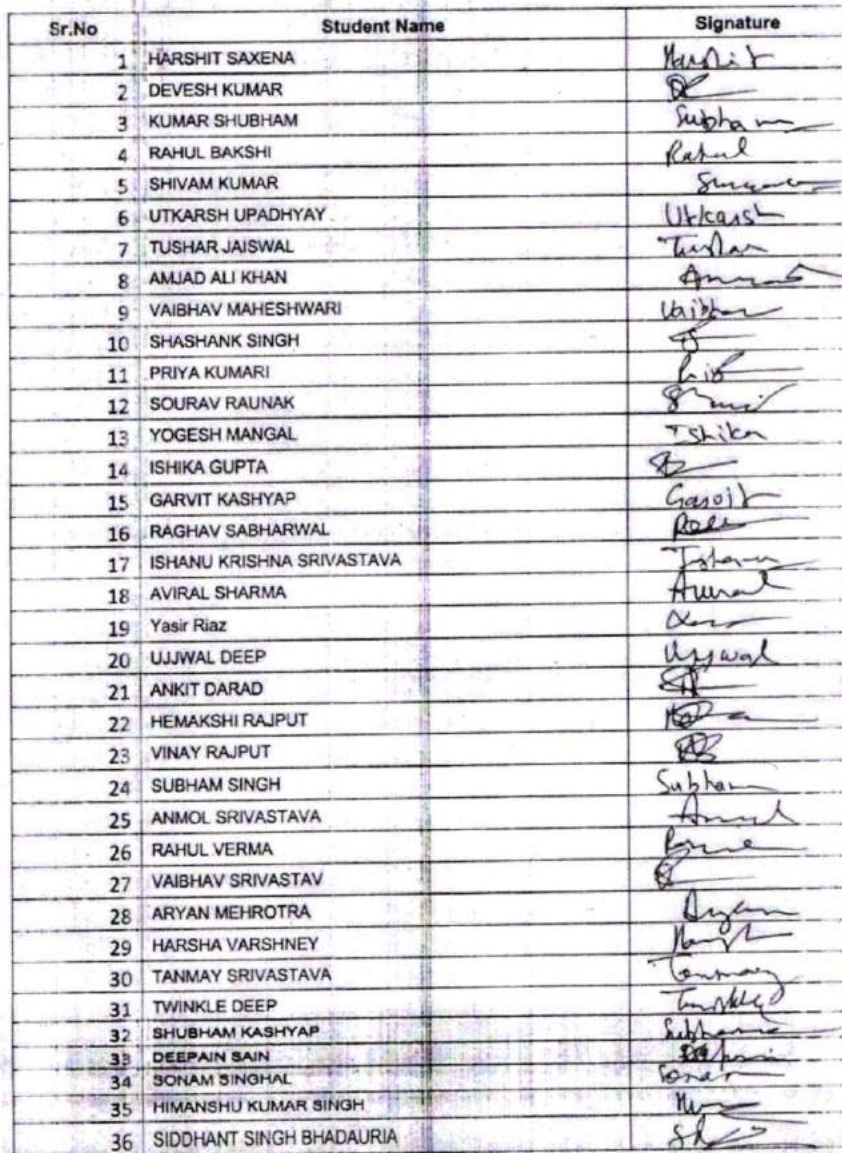 Sr.No Student Name Signature
1 HARSHIT SAXENA Harshit
2 DEVESH KUMAR
3 KUMAR SHUBHAM Subham
4 RAHUL BAKSHI Rahul
5 SHIVAM KUMAR
6 UTKARSH UPADHYAY Utkarsh
7 TUSHAR JAISWAL Tushar
8 AMJAD ALI KHAN
9 VAIBHAV MAHESHWARI Vaibhav
10 SHASHANK SINGH
11 PRIYA KUMARI
12 SOURAV RAUNAK
13 YOGESH MANGAL Ishika
14 ISHIKA GUPTA
15 GARVIT KASHYAP
16 RAGHAV SABHARWAL
17 ISHANU KRISHNA SRIVASTAVA
18 AVIRAL SHARMA
19 Yasir Riaz
20 UJJWAL DEEP Ujjwal
21 ANKIT DARAD
22 HEMAKSHI RAJPUT
23 VINAY RAJPUT
24 SUBHAM SINGH Subham
25 ANMOL SRIVASTAVA
26 RAHUL VERMA
27 VAIBHAV SRIVASTAV
28 ARYAN MEHROTRA Aryan
29 HARSHA VARSHNEY
30 TANMAY SRIVASTAVA Tanmay
31 TWINKLE DEEP Twinkle
32 SHUBHAM KASHYAP
33 DEEPAIN SAIN
34 SONAM SINGHAL Sonam
35 HIMANSHU KUMAR SINGH
36 SIDDHANT SINGH BHADAURIA